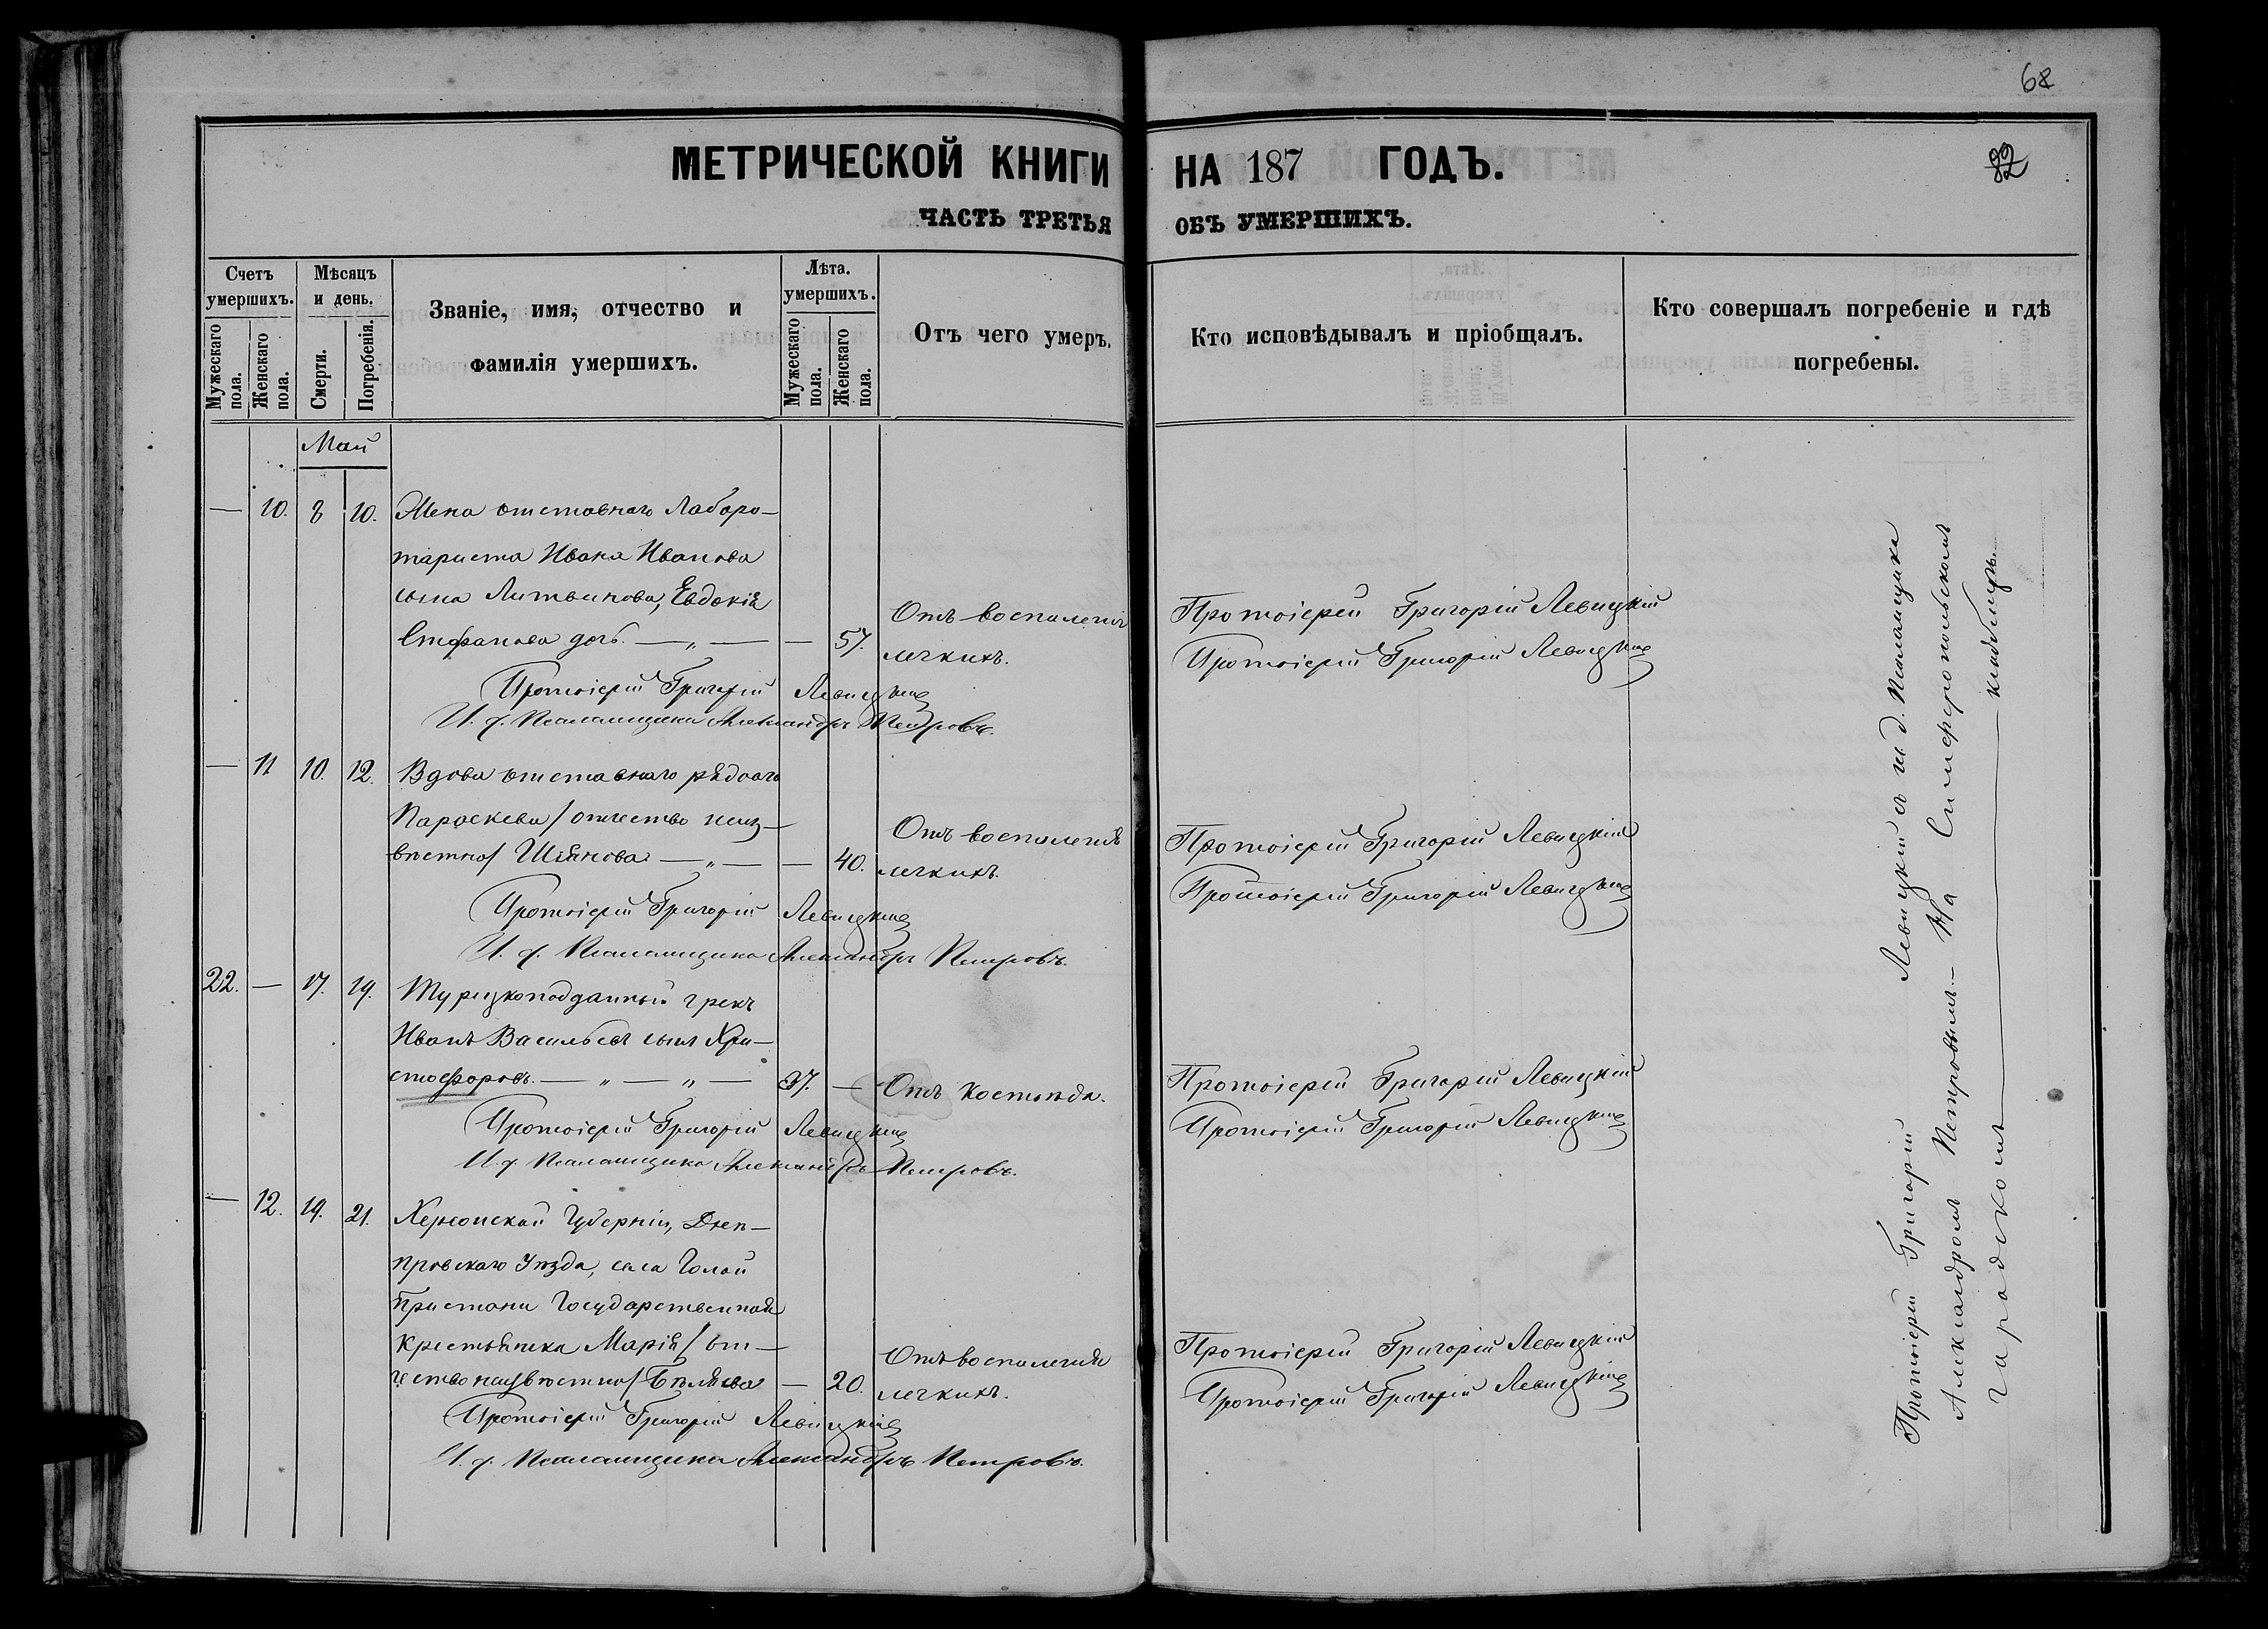 68
82
МЕТРИЧЕСКОЙ КНИГИ НА 187 ГОДЪ.
ЧАСТЬ ТРЕТЬЯ ОБЪ УМЕРШИХЪ.
Счетъ умершихъ.
Мужескаго пола.
Женскаго пола.
Мѣсяцъ и день.
Смерти.
Погребенія.
Званіе, имя, отчество и
фамилія умершихъ.
Лѣта. умершихъ.
Мужескаго пола.
Женскаго пола.
Отъ чего умеръ.
Кто исповѣдывалъ и пріобщалъ.
Кто совершалъ погребеніе и гдѣ
погребены.
Май
— 10. 8 10. Жена отставнаго Лаборо-
тариста Ивана Иванова
сына Литвинова, Евдокія
Стефанова дочь. — „ — — 57.
Отъ воспаленія
легкихъ.
Протоіерей Григорій Левицкій
Протоіерей Григорій Левицкій
Протоіерей Григорій Левицкій
И. д. Псаломщика Александръ Петровъ.
— 11 10. 12. Вдова отставнаго рядоваго
Параскева / отчество неиз-
вѣстно / Шіянова — „ — — 40.
Отъ воспаленія
легкихъ.
Протоіерей Григорій Левицкій
Протоіерей Григорій Левицкій
Протоіерей Григорій Левицкій
И. д. Псаломщика Александръ Петровъ.
22. — 17. 19. Турецкоподданный грекъ
Иванъ Васильевъ сынъ Хри-
стофоровъ. — „ — „ — 37. — Отъ Костоѣда.
Протоіерей Григорій Левицкій
Протоіерей Григорій Левицкій
Протоіерей Григорій Левицкій
И. д. Псаломщика Александръ Петровъ.
— 12. 19. 21. Херсонской Губерніи, Днѣп-
провскаго Уѣзда, села Голой
Пристани Государственная
Крестьянка Марія / от-
чество неизвѣстно / Бѣляева — 20.
Отъ воспаленія
легкихъ.
Протоіерей Григорій Левицкій
Протоіерей Григорій Левицкій
Протоіерей Григорій Левицкій
И. д. Псаломщика Александръ Петровъ.
Протоіерей Григорій Левицкій съ и. д. Псаломщика
Александромъ Петровымъ. — На Симферопольскомъ
городскомъ — кладбищѣ.